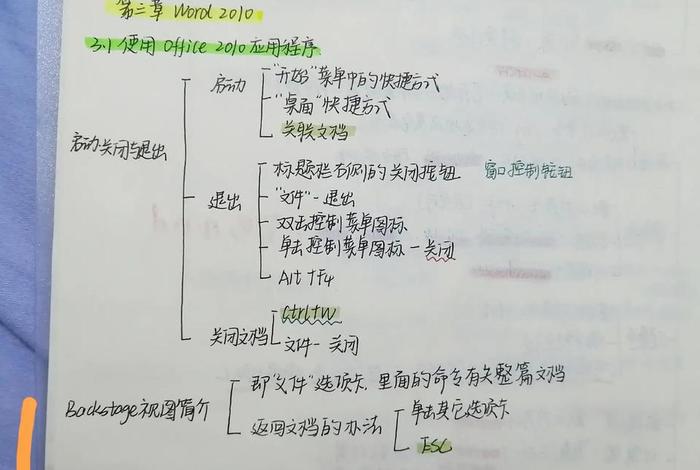 第三章 Word 2010
3.1 使用 Office 2010 应用程序
启动关闭与退出
启动
"开始"菜单中的快捷方式
"桌面"快捷方式
关联文档
退出
标题栏右侧的关闭按钮 窗口控制按钮
"文件"-退出
双击控制菜单图标
单击控制菜单图标-关闭
Alt+F4
关闭文档
Ctrl+W
文件-关闭
Backstage视图简介
即"文件"选项卡,里面的命令有关整篇文档
返回文档的办法
单击其它选项卡
ESC